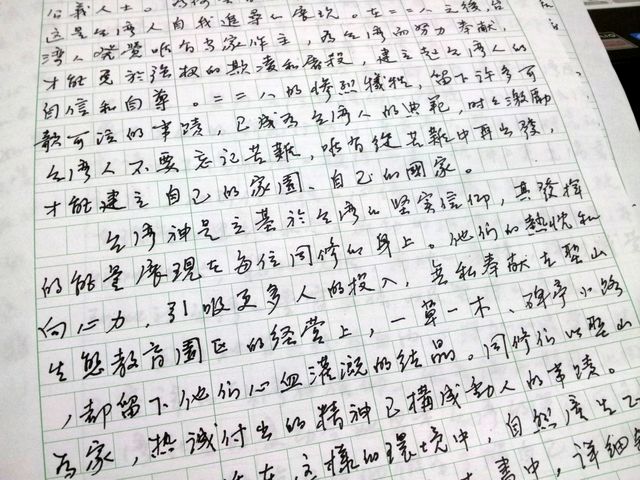 公義人士。
這是台灣人自我追尋的展現。在二二八之後,台
灣人覺醒唯有當家作主,為台灣而努力奉獻,
才能免於強權的欺凌和屠殺,建立起台灣人的
自信和自尊。二二八的慘烈犧牲,留下許多可
歌可泣的事蹟,已成為台灣人的典範,時時激勵
台灣人不要忘記苦難,唯有從苦難中再出發,
才能建立自己的家園、自己的國家。
台灣神是立基於台灣的堅實信仰,其發揮
的能量展現在每位同修的身上。他們的熱忱和
向心力,引吸更多人的投入,無私奉獻在聖山
生態教育園區的經營上,一草一木、碑亭小路
,都留下他們心血灌溉的結晶。同修們以聖山
為家,热誠付出的精神已構成動人的事蹟。
在這樣的環境中,自然產生
書中,詳細